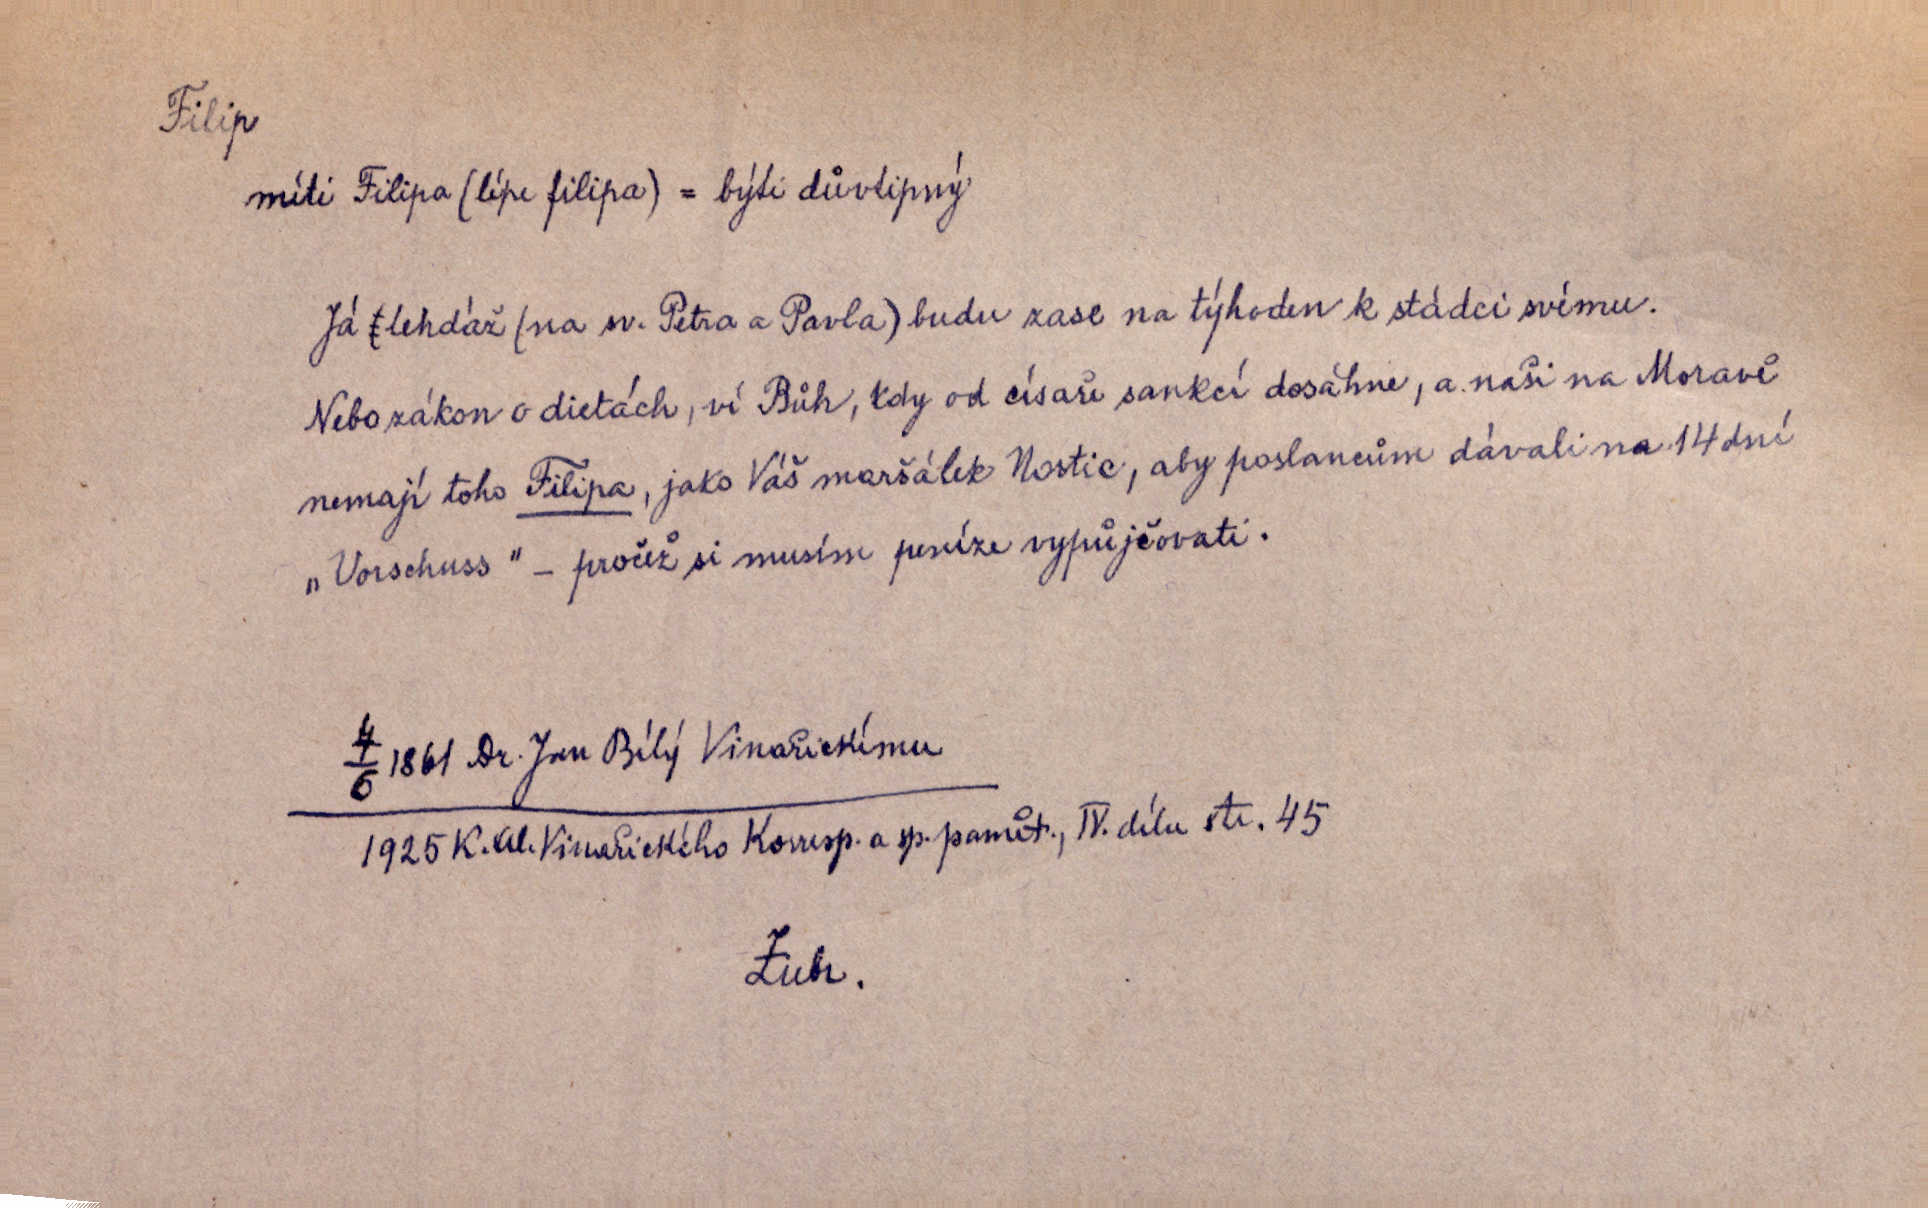 Filip
míti Filipa (lépe filipa) = býti důvtipný
Já tlehdáž (na sv. Petra a Pavla) budu zase na týhoden k stádci svému.
Nebo zákon o dietách, ví Bůh, kdy od císaře sankcí dosáhne, a naši na Moravě
nemají toho Filipa, jako Váš maršálek Nostic, aby poslancům dávali na 14 dní
„Vorschuss" – pročež si musím peníze vypůjčovati.
4/6 1861 Dr. Jan Bílý Vinařickému
1925 K. Al. Vinařického Korresp. a sp. pamět., IV. dílu str. 45
Zub.